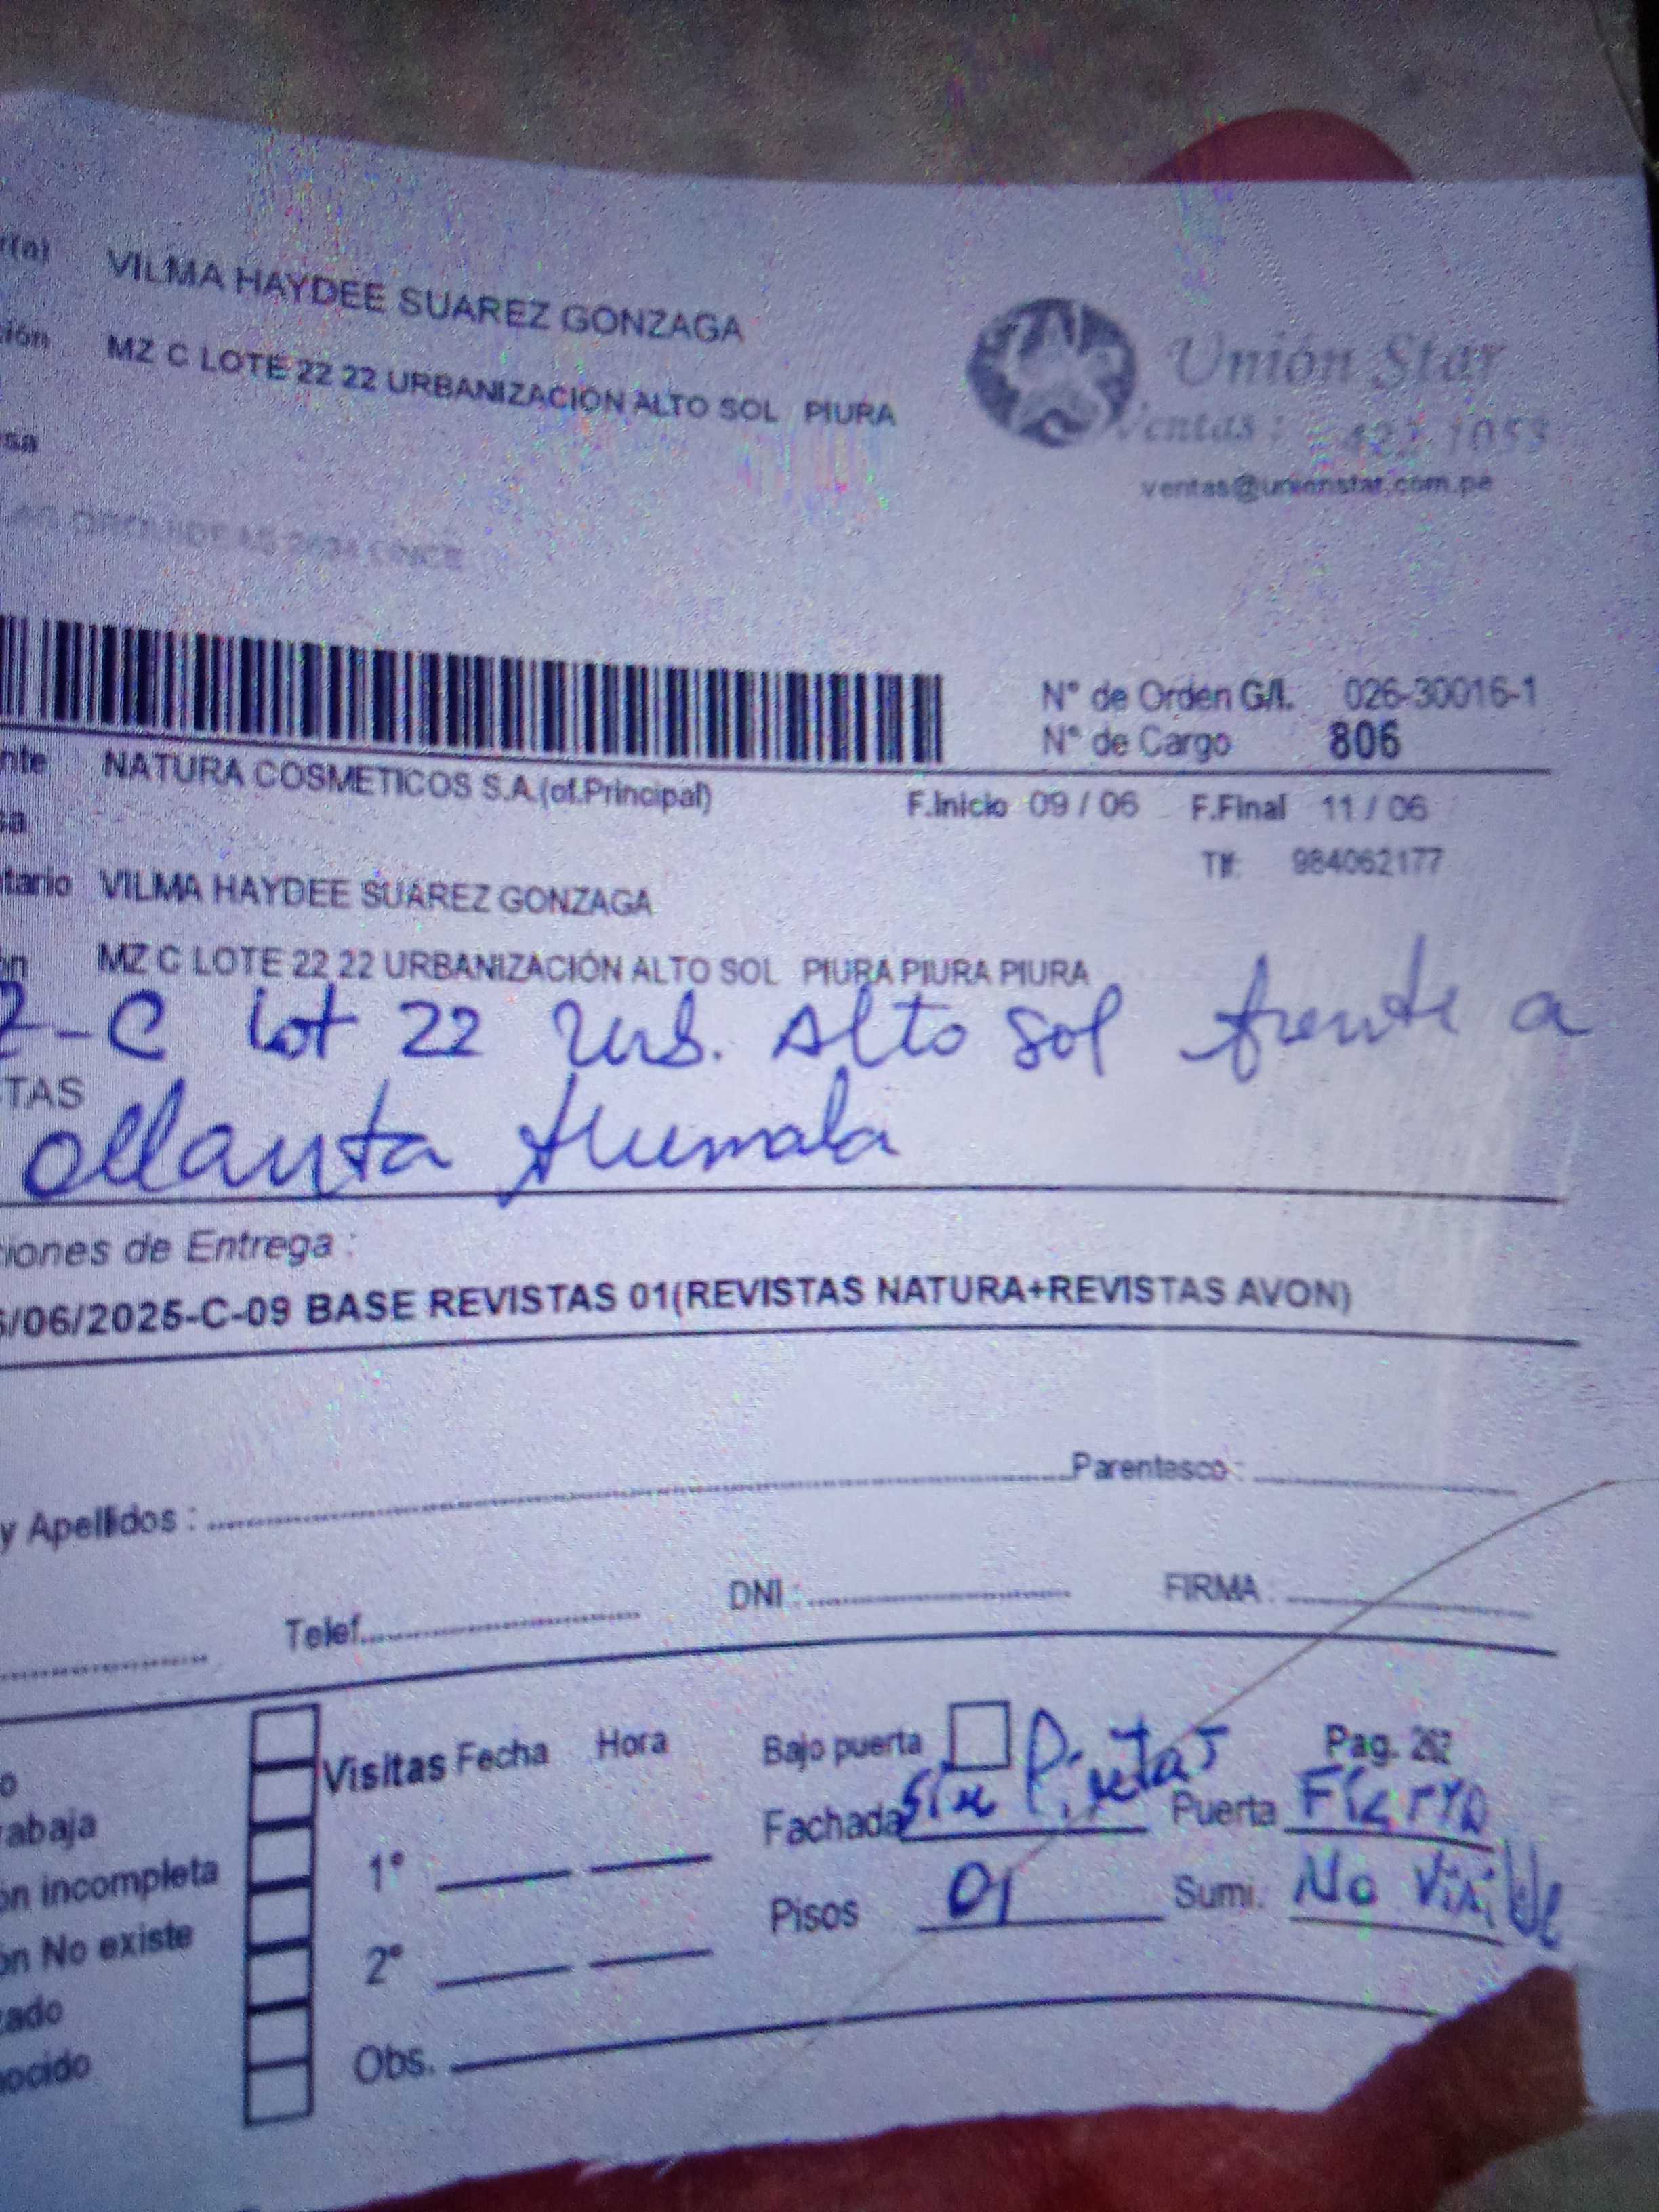 r(a) VILMA HAYDEE SUAREZ GONZAGA
ión MZ C LOTE 22 22 URBANIZACION ALTO SOL PIURA
sa
Unión Star
Ventas: 422 1053
ventas@unionstar.com.pe
N° de Orden G/I. 026-30016-1
N° de Cargo 806
nte NATURA COSMETICOS S.A.(of.Principal) F.Inicio 09 / 06 F.Final 11 / 06
sa
Tlf: 984062177
tario VILMA HAYDEE SUAREZ GONZAGA
ón MZ C LOTE 22 22 URBANIZACIÓN ALTO SOL PIURA PIURA PIURA
Z-C Lot 22 Urb. Alto Sol frente a
TAS
Ollanta Humala
iones de Entrega :
/06/2025-C-09 BASE REVISTAS 01(REVISTAS NATURA+REVISTAS AVON)
y Apellidos : Parentesco :
Telef. DNI : FIRMA :
Visitas Fecha Hora Bajo puerta Pag. 262
o
abaja 1° Fachada Sin Puerta Fierro
ón incompleta
ón No existe 2° Pisos 01 Sumi. No Visible
ado
ocido Obs.